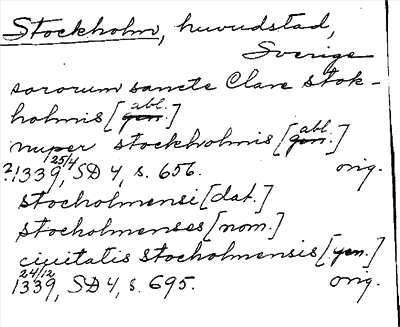 Stockholm, huvudstad,
Sverige
sororum sancte Clare stok-
holmis [gen. abl.]
nuper stockholmis [gen. abl.]
?1339 25/4, SD 4, s. 656. orig.
stocholmensi [dat.]
stocholmenses [nom.]
ciuitatis stocholmensis [gen.]
1339 24/12, SD 4, s. 695. orig.